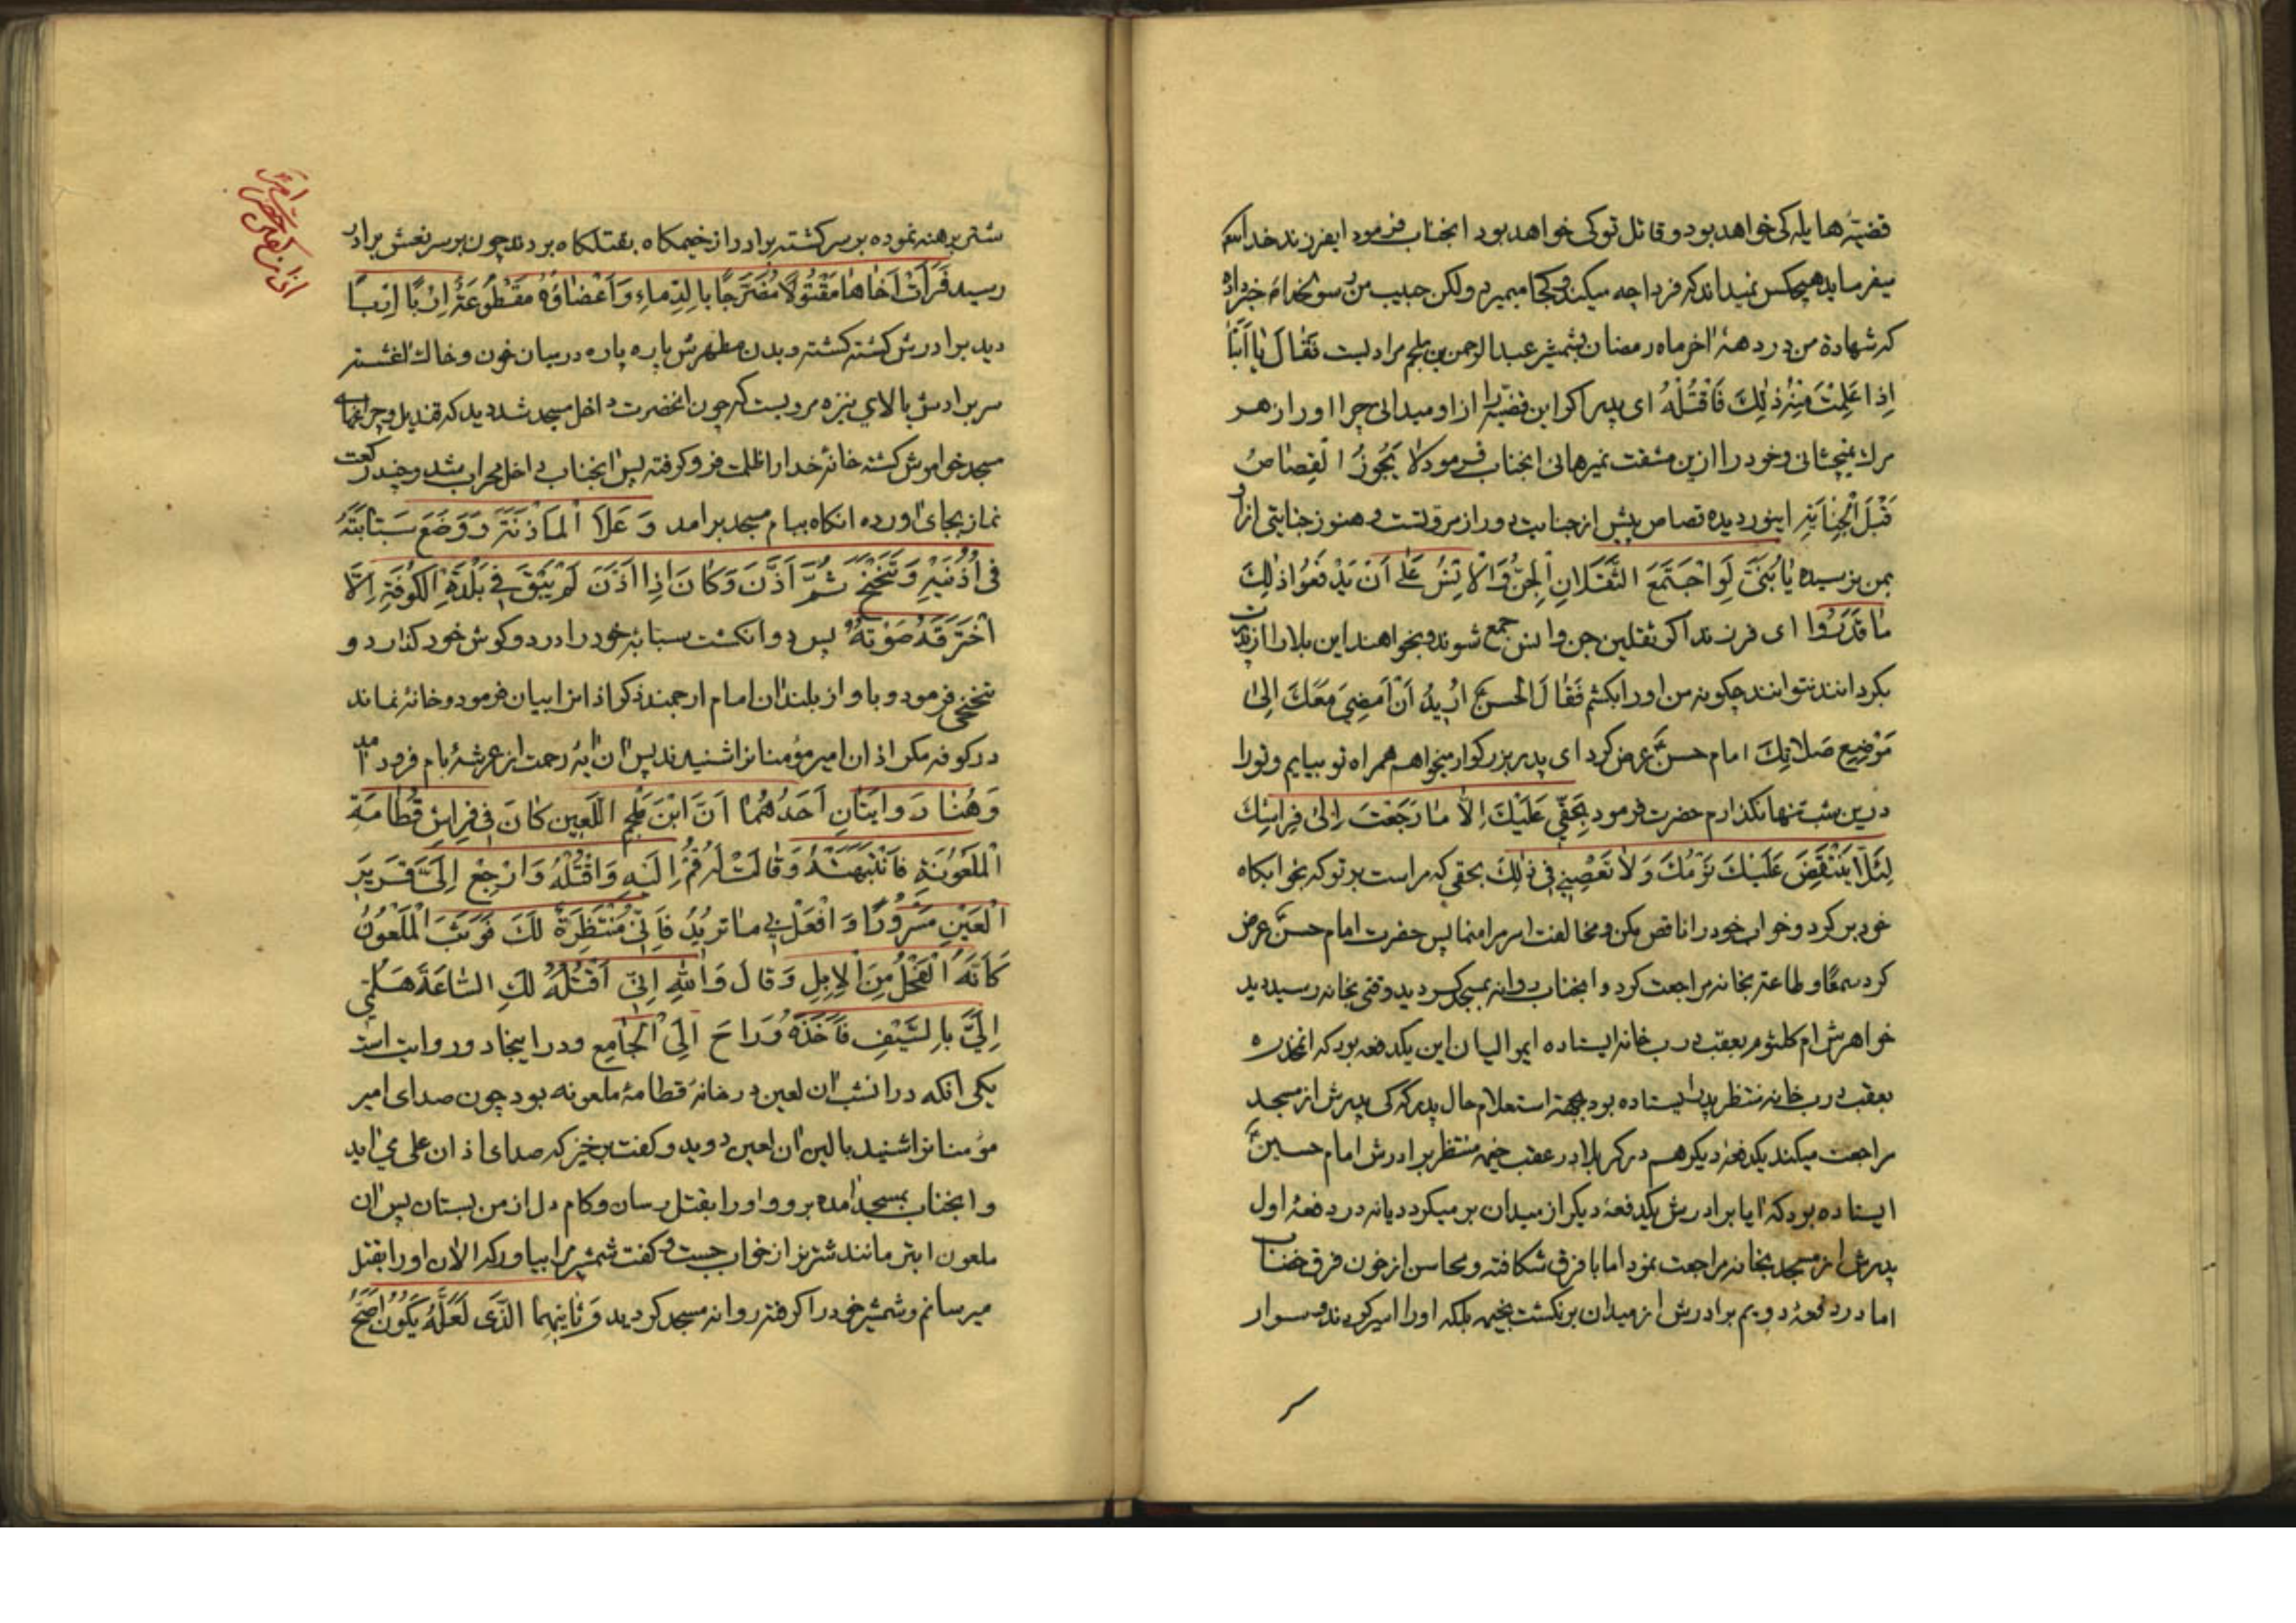 قضیّه هایله کی خواهد بود و قاتل تو کی خواهد بود انجناب فرمود ایفرزند خدا
میفرماید هیچکس نمیداند که فردا چه میکند و کجا میمیرد ولکن حبیب من رسولخدا مرا خبر داده
که شهادة من در دههٔ اخر ماه رمضان بشمشیر عبدالرحمن بن ملجم مرادیست فَقالَ یا اَبَتا
اِذا عَلِمْتَ مِنْهُ ذٰلِكَ فَاقْتُلْهُ ای پدر اکر این قضیّه را از او میدانی چرا او را زهر
مرك نمیچشانی و خود را ازین مشقت نمیرهانی انجناب فرمود لا یَجُوزُ القِصٰاصُ
قَبْلَ الْجِنٰایَةِ اینور دیده قصاص پیش از جنایت دور از مروّتست و هنوز جنایتی از او
بمن نرسیده یٰا بُنَیَّ لَوِ اجْتَمَعَ الثَّقَلانِ الْجِنُّ وَالْاِنْسُ عَلٰی اَنْ یَدْفَعُوا ذٰلِكَ
مٰا قَدَرُوا ای فرزند اکر ثقلین جن و انس جمع شوند و بخواهند این بلا را از پدرت
بکردانند نتوانند چکونه من او را بکشم فَقٰالَ الْحَسَنُ اُرِیدُ اَنْ اَمْضِیَ مَعَكَ اِلیٰ
مَوْضِعِ صَلٰاتِكَ امام حسن عرض کرد ای پدر بزرکوار میخواهم همراه تو بیایم و تو را
درین شب تنها نکذارم حضرت فرمود بِحَقّی عَلَیْكَ اِلّا مٰا رَجَعْتَ اِلیٰ فِراشِكَ
لِئَلّا یَنْتَقِضَ عَلَیْكَ نَوْمُكَ وَلٰا تَعْصِنی فی ذٰلِكَ بحقی که مراست بر تو که بخوابکاه
خود برکرد و خواب خود را ناقص مکن و مخالفت امر مرا منما پس حضرت امام حسن عرض
کرد سمعًا و طاعة بخانه مراجعت کرد و انجناب روانه مسجد کردید وقتی بخانه رسید دید
خواهرش ام کلثوم بعقب درب خانه ایستاده ایموالیان این یکدفعه بود که انمخدره
بعقب درب خانه منتظر پدر ایستاده بود بجهة استعلام حال پدر که کی پدرش از مسجد
مراجعت میکند یکدفعهٔ دیکر هم در کربلا در عقب خیمه منتظر برادرش امام حسین
ایستاده بود که ایا برادرش یکدفعهٔ دیکر از میدان بر میکردد یا نه در دفعهٔ اول
پدرش از مسجد بخانه مراجعت نمود اما با فرق شکافته و محاسن از خون فرق خضاب
اما در دفعهٔ دویم برادرش از میدان برنکشت بخیمه بلکه او را اسیر کردند و سوار
شتر برهنه نموده بر سر کشته برادر از خیمکاه بقتلکاه بردند چون بر سر نعش برادر
رسید فَرَأَتْ اَخٰاهٰا مَقْتُولًا مُضَرَّجًا بِالدِّمٰاءِ وَ اَعْضٰاؤُهُ مَقْطُوعَةً اِرْبًا اِرْبًا
دید برادرش کشته کشته و بدن مطهرش پاره پاره در میان خون و خاك اغشته
سر برادرش بالای نیزه مرویست که چون انحضرت داخل مسجد شد دید که قندیل و چراغهای
مسجد خواموش کشته خانهٔ خدا را ظلمت فرو کرفته پس انجناب داخل محراب شد و چند رکعت
نماز بجای اورده انکاه ببام مسجد برامد وَ عَلَا الْمَأذَنَةَ وَ وَضَعَ سَبّٰابَتَهُ
فی اُذُنَیْهِ وَ تَنَحْنَحَ ثُمَّ اَذَّنَ وَ کٰانَ اِذٰا اَذَّنَ لَمْ یَبْقَ فی بَلْدَةِ الْکُوفَةِ اِلّا
اخْتَرَقَهُ صَوْتُهُ پس دو انکشت سبابهٔ خود را در دو کوش خود کذارد و
تنحنحی فرمود و باواز بلند ان امام ارجمند ذکر اذانرا بیان فرمود و خانهٔ نماند
در کوفه مکر اذان امیرمؤمنانرا شنیدند پس ان ایه رحمت از عرشهٔ بام فرود امد
وَ هُنٰا رَوایَتٰانِ اَحَدُهُمٰا اَنَّ ابْنَ مُلْجِمِ اللَّعِینِ کٰانَ فی فِراشِ قُطّامَةِ
الْمَلْعُونَةِ فَانْتَبَهَتْهُ وَ قٰالَتْ لَهُ قُمْ اِلَیْهِ وَ اقْتُلْهُ وَ ارْجِعْ اِلَیَّ قَرِیرَ
الْعَیْنِ مَسْرُورًا وَ افْعَلْ بی مٰا تُریدُ فَاِنّی مُنْتَظِرَةٌ لَكَ فَوَثَبَ الْمَلْعُونُ
کَأَنَّهُ الْفَحْلُ مِنَ الْاِبِلِ وَ قٰالَ وَاللهِ اِنّی اَقْتُلُهُ لَكِ السّٰاعَةَ هَلُمّی
اِلَیَّ بِالسَّیْفِ فَاَخَذَهُ وَ رٰاحَ اِلَی الْجٰامِعِ و در اینجا دو روایت است
یکی انکه در انشب ان لعین در خانهٔ قطامهٔ ملعونه بود چون صدای امیر
مؤمنانرا شنید ببالین ان لعین دوید و کفت برخیز که صدای اذان علی می اید
و انجناب بمسجد امده برو و او را بقتل رسان و کام دل از من بستان پس ان
ملعون ابتر مانند شتر نر از خواب جست و کفت شمشیر مرا بیاور که الان او را بقتل
میرسانم و شمشیر خود را کرفته روانه مسجد کردید وَ ثٰانِیهِمَا الَّذی لَعَلَّهُ یَکُونُ اَصَحَّ